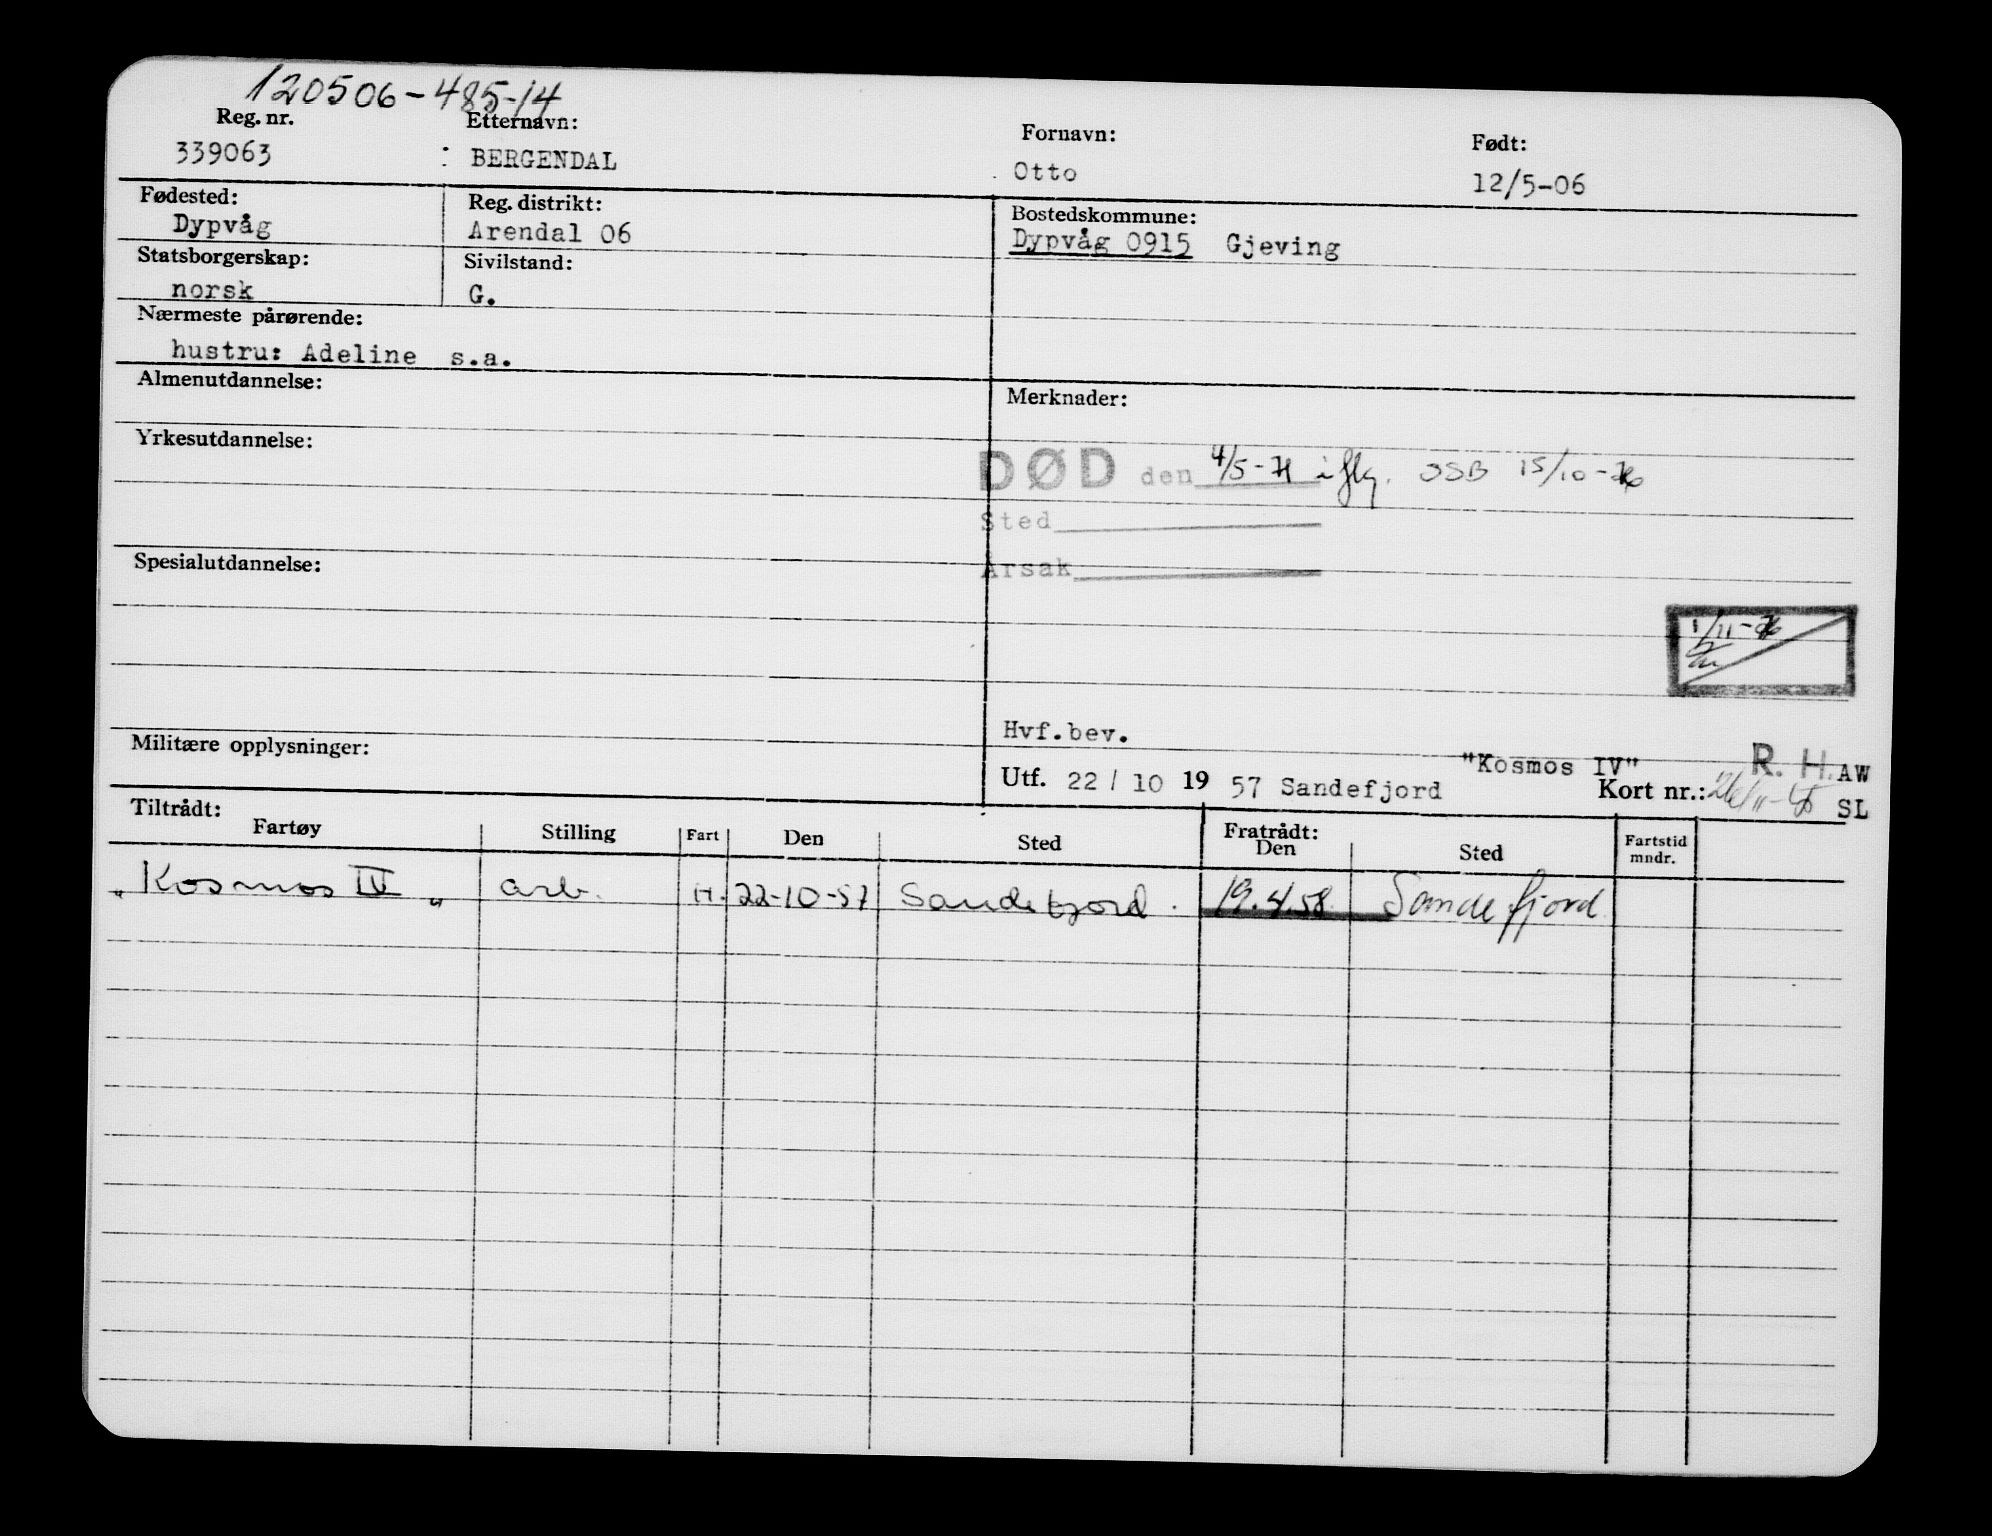 120506-485-14
Reg. nr. Etternavn: Fornavn: Født:
339063 : BERGENDAL Otto 12/5-06
Fødested: Reg. distrikt: Bostedskommune:
Dypvåg Arendal 06 Dypvåg 0915 Gjeving
Statsborgerskap: Sivilstand:
norsk G.
Nærmeste pårørende:
hustru: Adeline s.a.
Almenutdannelse: Merknader:
Yrkesutdannelse:
DØD den 4/5-71 iflg. SSB 15/10-76
Sted
Årsak
Spesialutdannelse:
1/11-76
Hvf.bev.
Militære opplysninger:
"Kosmos IV" R. H. AW
Utf. 22 / 10 19 57 Sandefjord Kort nr.: SL
Tiltrådt: Fratrådt:
Fartøy Stilling Fart Den Sted Den Sted Fartstid mndr.
"Kosmos IV" arb. H. 22-10-57 Sandefjord. 19.4.58. Sandefjord